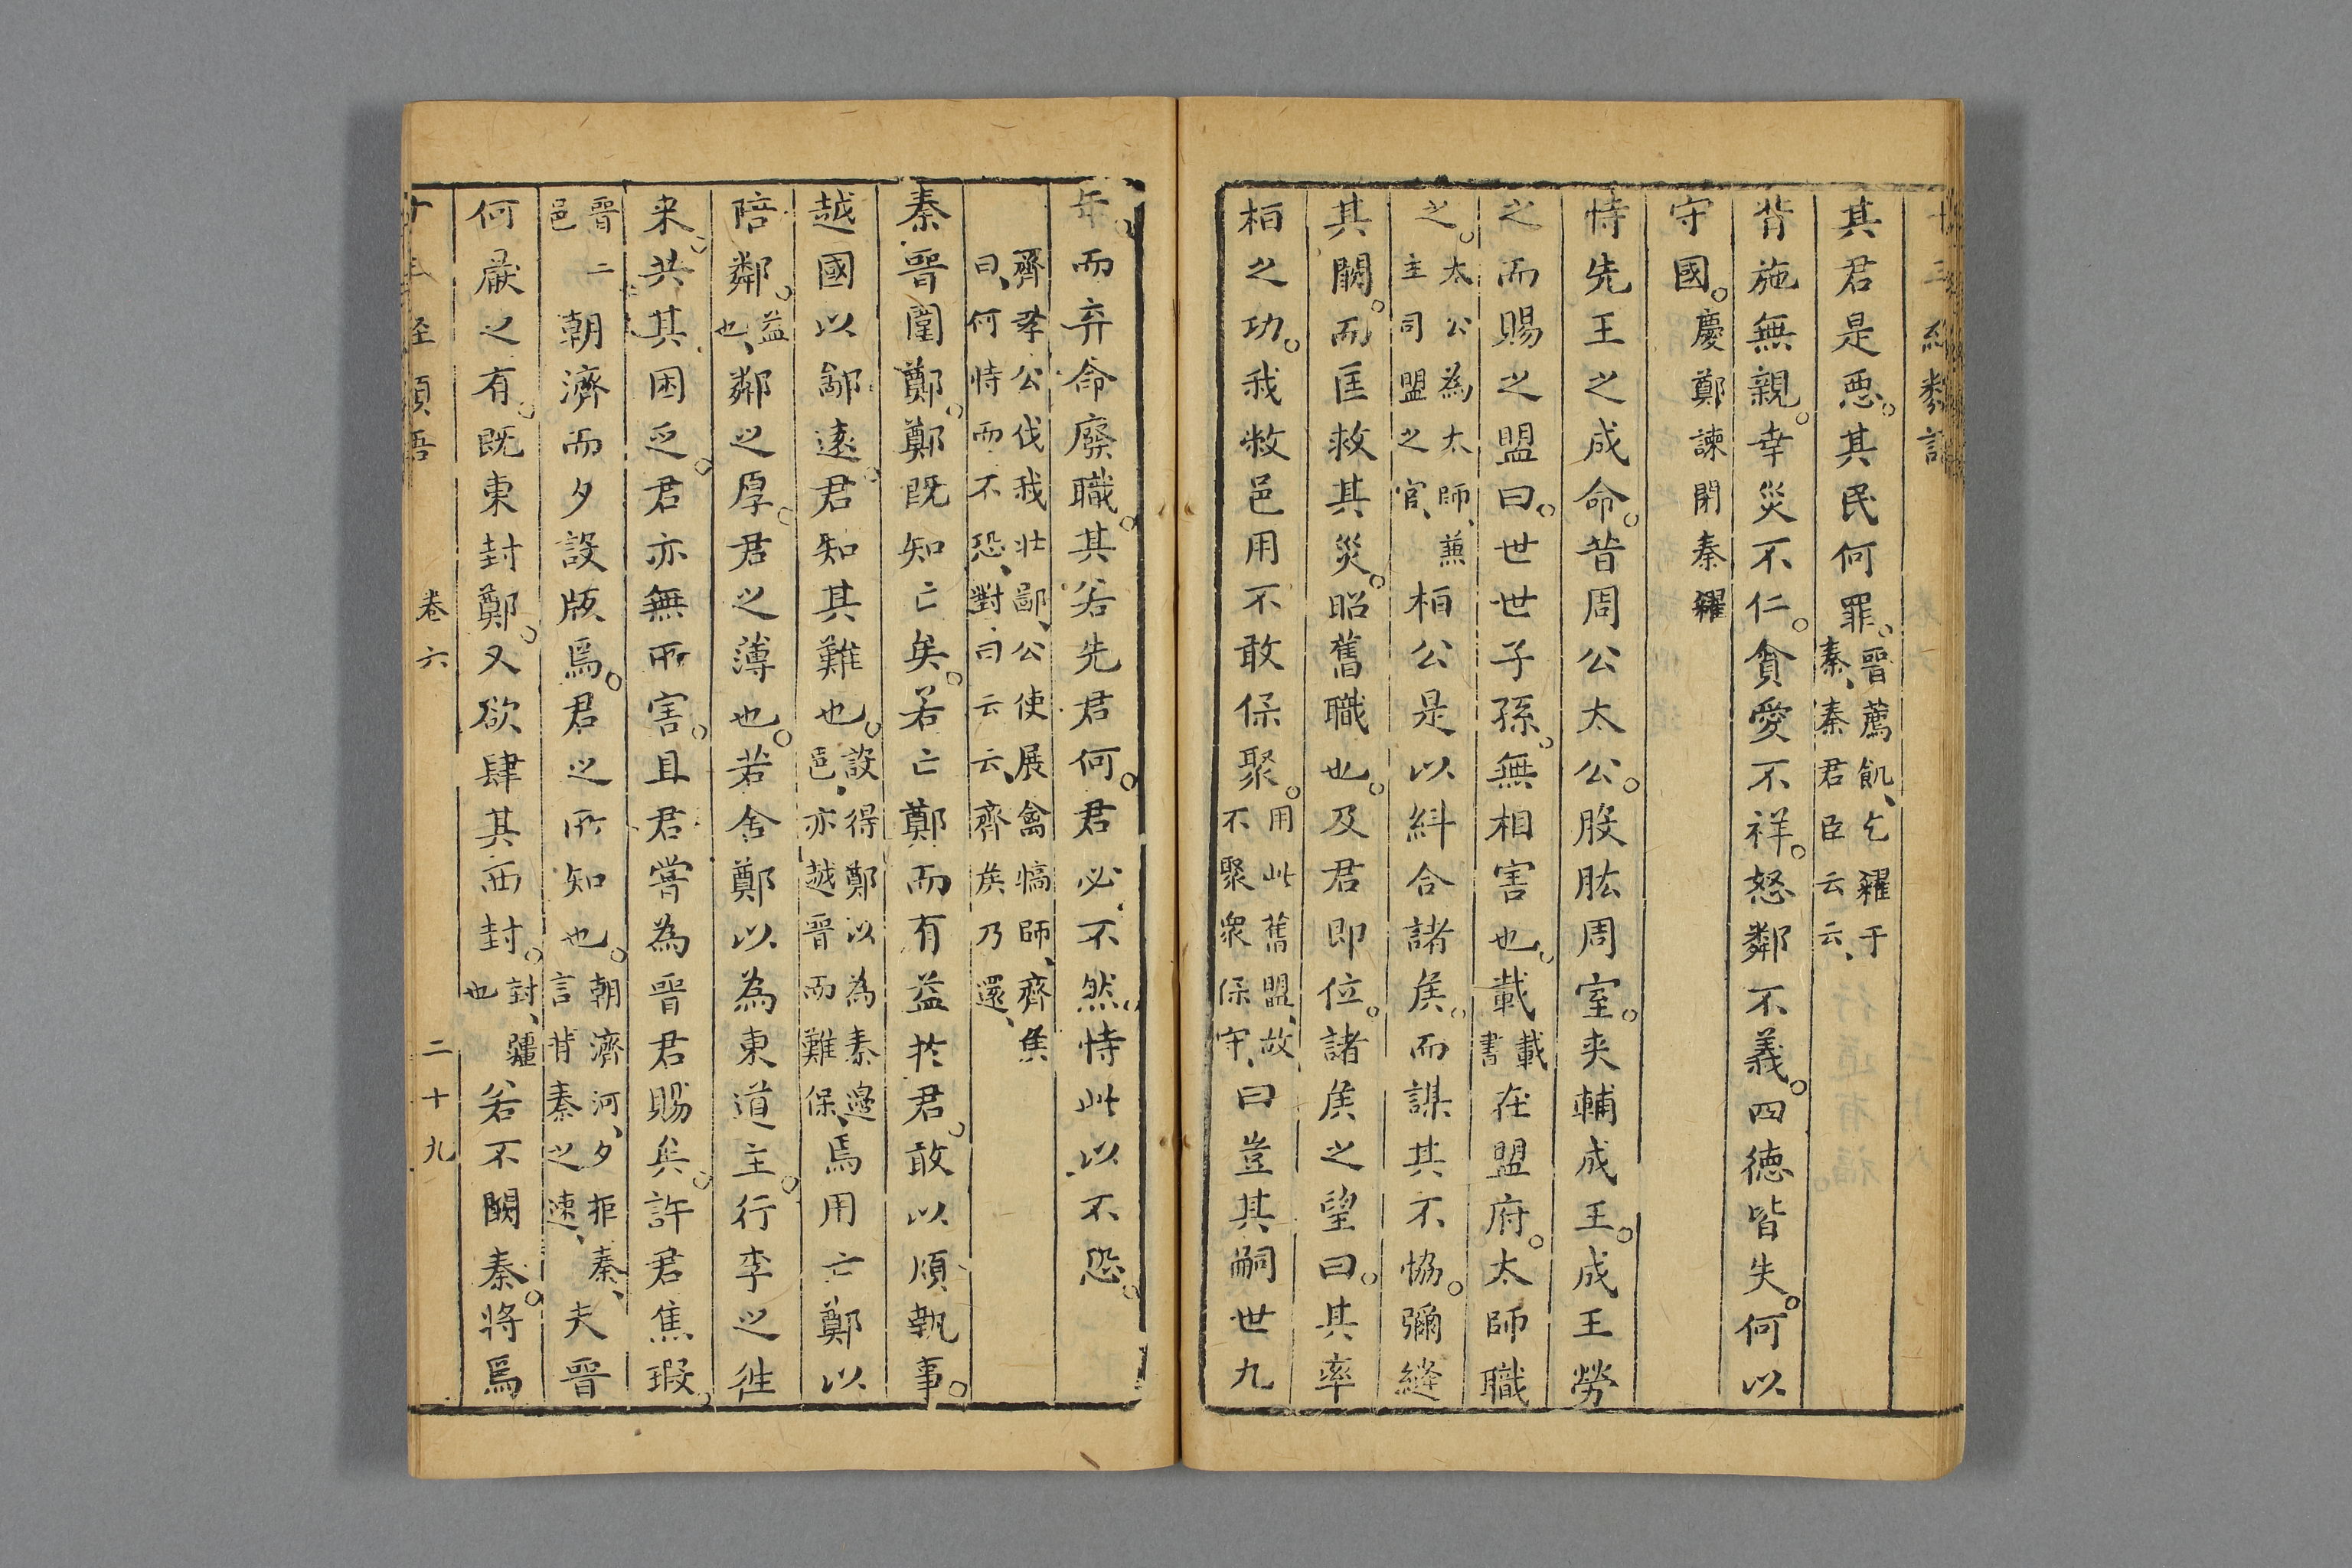 其君是惡其民何罪晉薦飢乞糴于秦秦君臣云云
背施無親幸災不仁貪愛不祥怒鄰不義四德皆失何以
守國慶鄭諫閉秦糴
恃先王之成命昔周公太公股肱周室夾輔成王成王勞
之而賜之盟曰世世子孫無相害也載載書在盟府太師職
之太公為太師兼主司盟之官桓公是以糾合諸侯而謀其不協彌縫
其闕而匡救其災昭舊職也及君即位諸侯之望曰其率
桓之功我敝邑用不敢保聚用此舊盟故不聚衆保守曰豈其嗣世九
年而弃命廢職其若先君何君必不然恃此以不恐
齊孝公伐我北鄙公使展禽犒師齊侯曰何恃而不恐對曰云云齊侯乃還
秦晉圍鄭鄭既知亡矣若亡鄭而有益於君敢以煩執事
越國以鄙遠君知其難也設得鄭以為秦邊邑亦越晉而難保焉用亡鄭以
陪鄰益也鄰之厚君之薄也若舍鄭以為東道主行李之往
来共其困乏君亦無所害且君嘗為晉君賜矣許君焦瑕
晉二邑朝濟而夕設版焉君之所知也朝濟河夕拒秦言背秦之速夫晉
何厭之有既東封鄭又欲肆其西封封疆也若不闕秦將焉
卷六 二十九